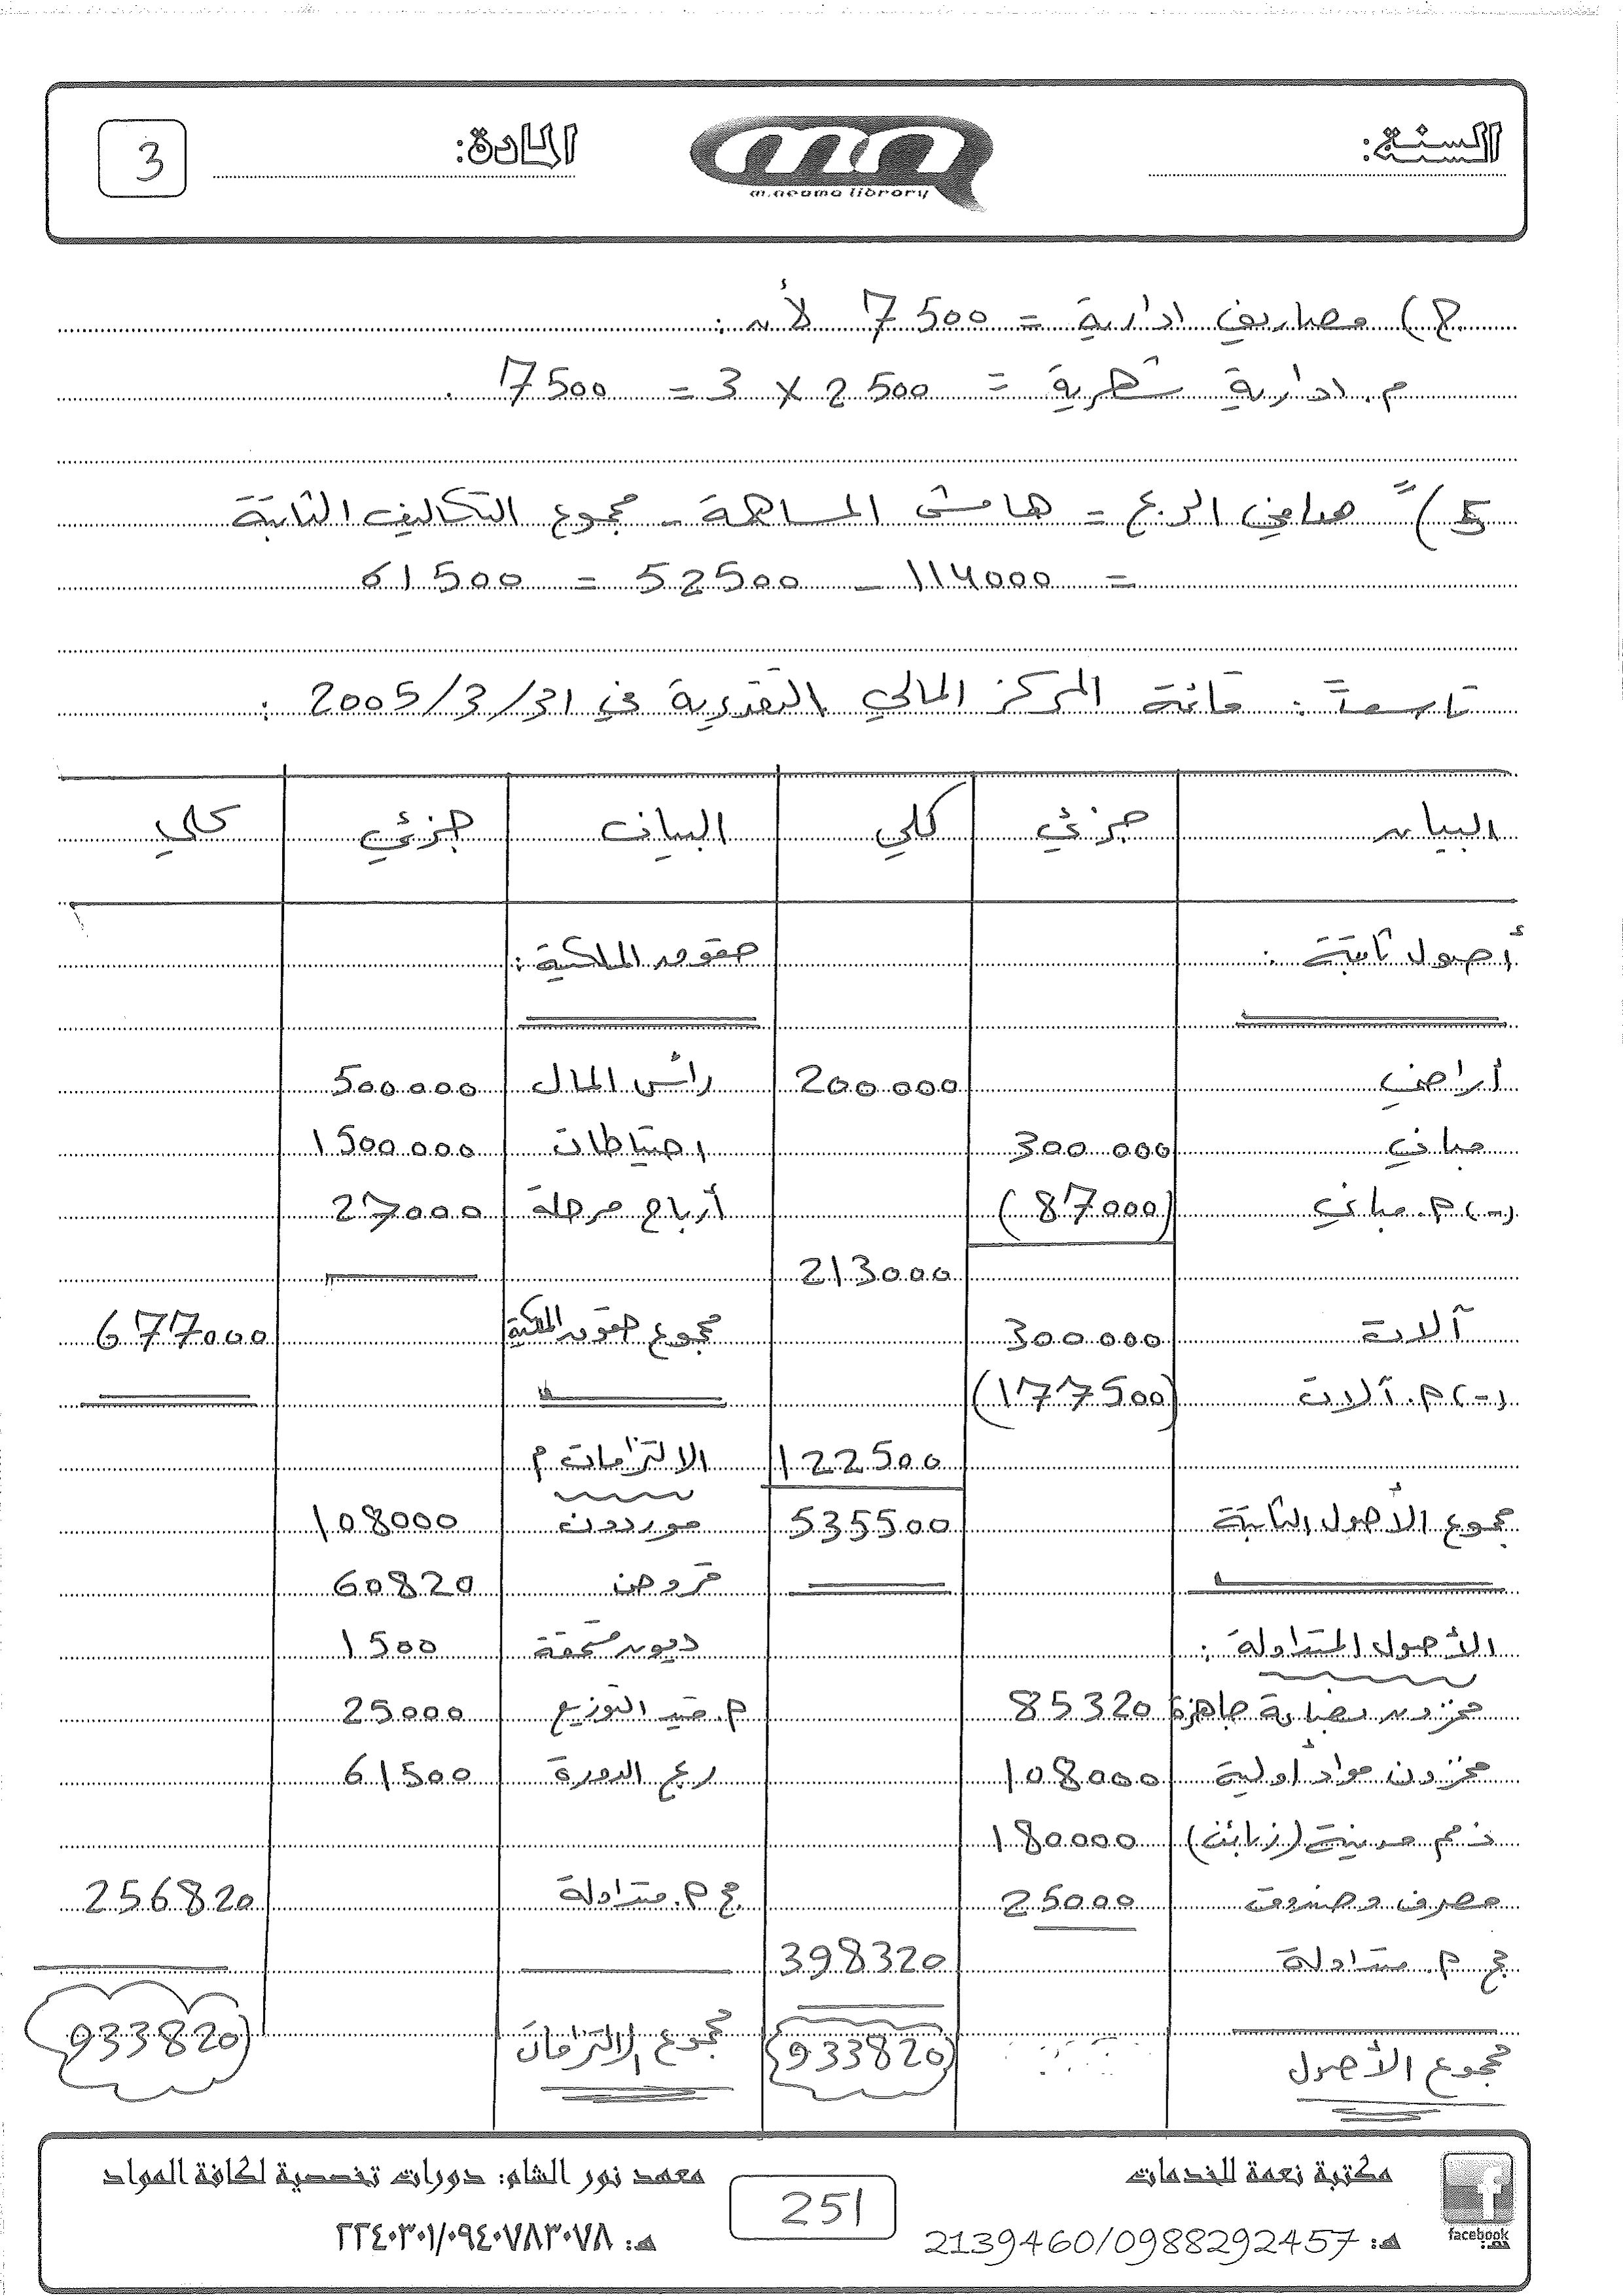 السنة:
m.neama library
المادة:
3
م) مصاريف ادارية = 7500 لأن :
م. ادارية شهرية = 2500 × 3 = 7500 .
5) صافي الربح = هامش المساهمة - مجموع التكاليف الثابتة
= 114000 - 52500 = 61500
تاسعاً : قائمة المركز المالي التقديرية في 31/3/2005 :
البيان جزئي كلي البيان جزئي كلي
أصول ثابتة : حقوق الملكية :
أراضي 200000 رأس المال 500000
مباني 300000 احتياطات 1500000
(-) م. مباني (87000) أرباح مرحلة 27000
213000
آلات 300000 مجموع حقوق الملكية 677000
(-) م. آلات (177500)
122500 الالتزامات م
مجموع الأصول الثابتة 535500 موردون 108000
قروض 60820
الأصول المتداولة : ديون مستحقة 1500
مخزون بضاعة جاهزة 85320 م. قيد التوزيع 25000
مخزون مواد أولية 108000 ربح الدورة 61500
ذمم مدينة (زبائن) 180000
مصرف وصندوق 25000 مج م. متداولة 256820
مج م. متداولة 398320
مجموع الأصول 933820 مجموع الالتزامات 933820
مكتبة نعمة للخدمات
هـ: 2139460/0988292457
facebook
251
معهد نور الشام: دورات تخصصية لكافة المواد
هـ: ٢٢٤٠٣٠١/٠٩٤٠٧٨٣٠٧٨